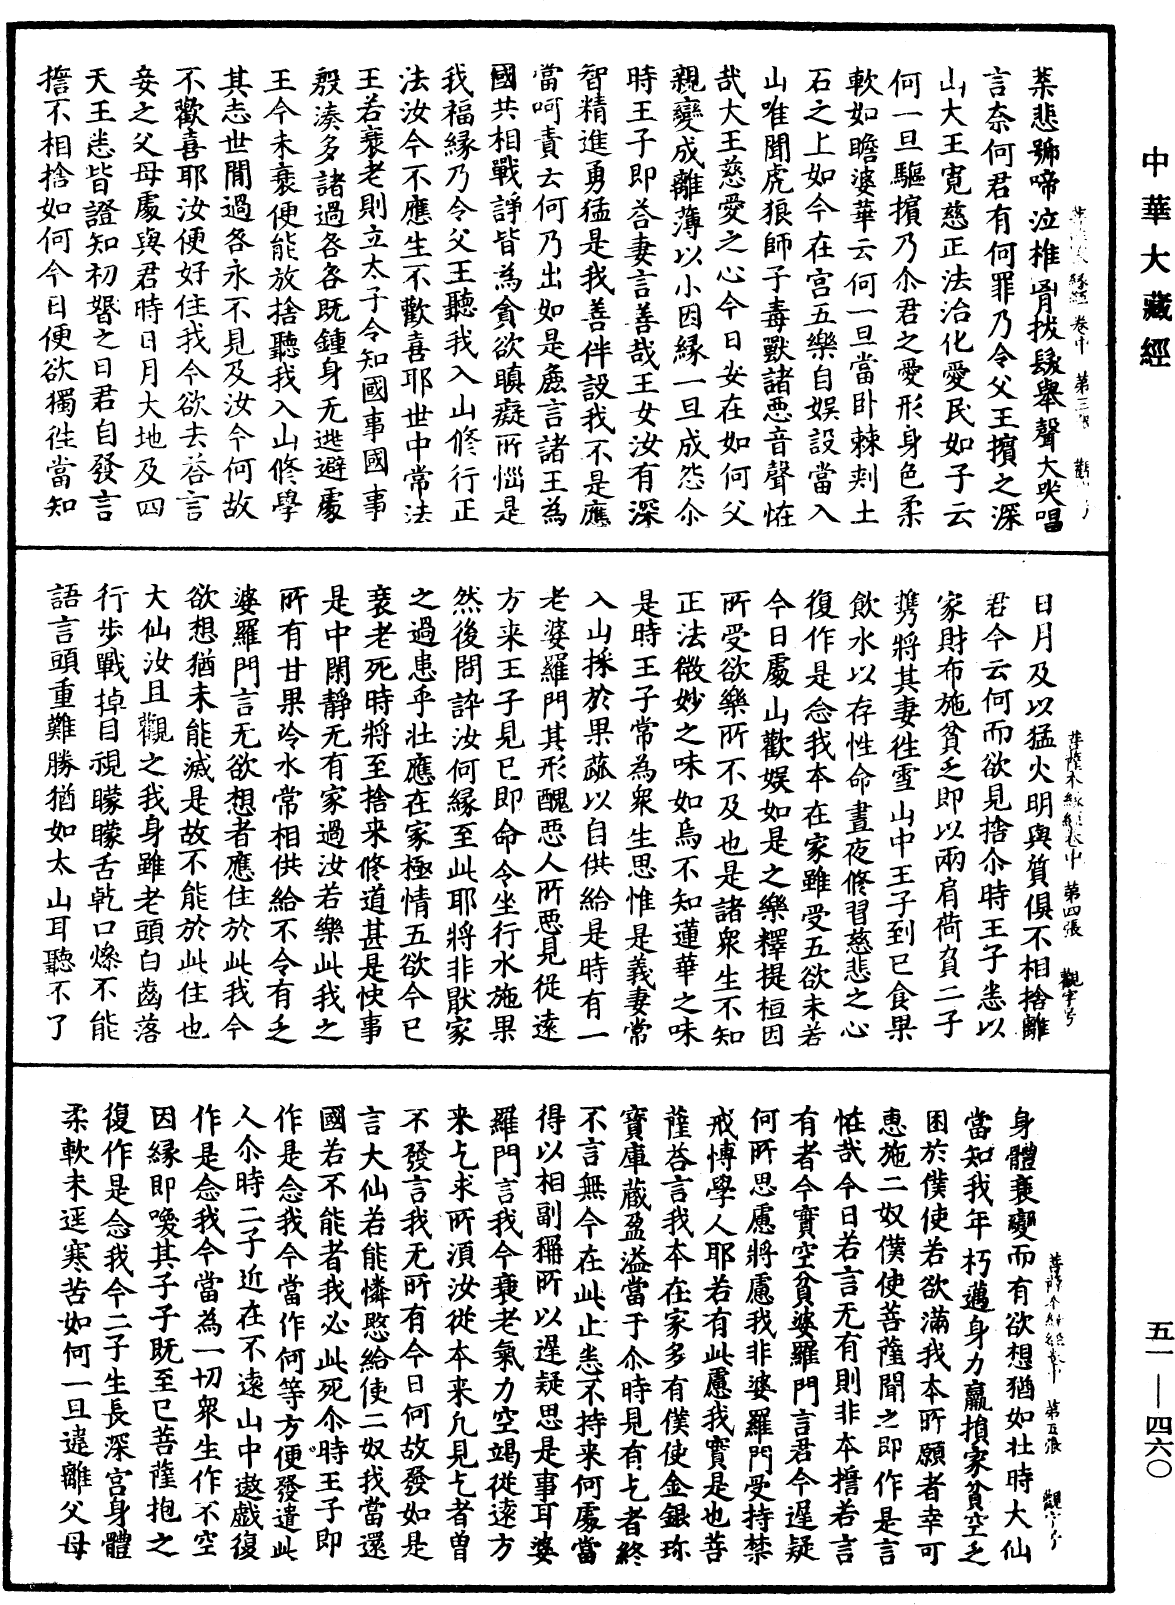 中華大藏經
葉悲號啼泣椎胷拔髮舉聲大哭唱
言奈何君有何罪乃令父王擯之深
山大王寛慈正法治化愛民如子云
何一旦驅擯乃尒君之愛形身色柔
軟如瞻婆華云何一旦當卧棘刾土
石之上如今在宫五樂自娛設當入
山唯聞虎狼師子毒獸諸惡音聲恠
哉大王慈愛之心今日安在如何父
親變成離薄以小因縁一旦成怨尒
時王子即荅妻言善哉王女汝有深
智精進勇猛是我善伴設我不是應
當呵責云何乃出如是麁言諸王為
國共相戰諍皆為貪欲瞋癡所惱是
我福縁乃令父王聽我入山修行正
法汝今不應生不歡喜耶世中常法
王若衰老則立太子令知國事國事
殷湊多諸過咎各既鍾身无逃避處
王今未衰便能放捨聽我入山修學
其志世間過咎永不見及汝今何故
不歡喜耶汝便好住我今欲去荅言
妾之父母處與君時日月大地及四
天王悉皆證知初婚之日君自發言
擔不相捨如何今日便欲獨徃當知
菩薩本縁經卷中 第四張 觀字号
日月及以猛火明與質俱不相捨離
君今云何而欲見捨尒時王子悉以
家財布施貧乏即以兩肩荷負二子
携將其妻徃雪山中王子到已食果
飲水以存性命晝夜修習慈悲之心
復作是念我本在家雖受五欲未若
今日處山歡娛如是之樂釋提桓因
所受欲樂所不及也是諸衆生不知
正法微妙之味如烏不知蓮華之味
是時王子常為衆生思惟是義妻常
入山採於果蓏以自供給是時有一
老婆羅門其形醜惡人所惡見從遠
方来王子見已即命令坐行水施果
然後問訊汝何縁至此耶將非猒家
之過患乎壯應在家極情五欲今已
衰老死時將至捨来修道甚是快事
是中閑靜无有家過汝若樂此我之
所有甘果冷水常相供給不令有乏
婆羅門言无欲想者應住於此我今
欲想猶未能滅是故不能於此住也
大仙汝且觀之我身雖老頭白齒落
行步戰掉目視矇矇舌乾口燥不能
語言頭重難勝猶如太山耳聽不了
第五張
身體衰變而有欲想猶如壯時大仙
當知我年朽邁身力羸損家貧空乏
困於僕使若欲滿我本所願者幸可
惠施二奴僕使菩薩聞之即作是言
恠哉今日若言无有則非本擔若言
有者今實空貧婆羅門言君今遲疑
何所思慮將慮我非婆羅門受持禁
戒愽學人耶若有此慮我實是也菩
薩荅言我本在家多有僕使金銀珎
寶庫藏盈溢當于尒時見有乞者終
不言無今在此止悉不持来何處當
得以相副稱所以遲疑思是事耳婆
羅門言我今衰老氣力空竭從遠方
来乞求所湏汝從本来凡見乞者曾
不發言我无所有今日何故發如是
言大仙若能憐愍給使二奴我當還
國若不能者我必此死尒時王子即
作是念我今當作何等方便發遣此
人尒時二子近在不遠山中遨戲復
作是念我今當為一切衆生作不空
因縁即喚其子子既至已菩薩抱之
復作是念我今二子生長深宫身體
柔軟未遥寒苦如何一旦違離父母
五一—四六〇